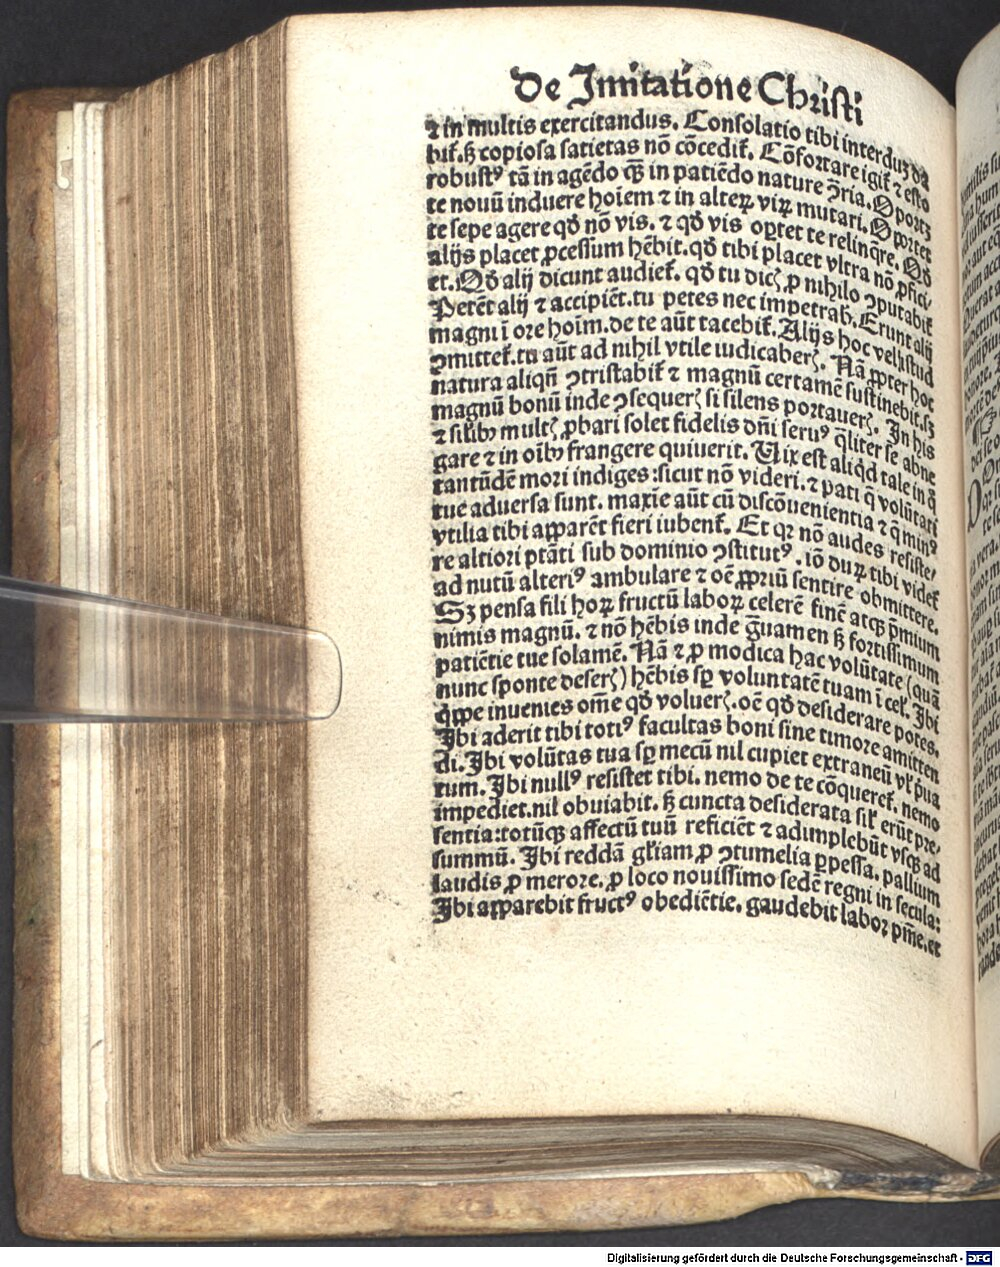 De Imitatione Christi
⁊ in multis exercitandus. Consolatio tibi interduʒ da
bit᷑. sꝫ copiosa satietas nō cōcedit᷑. Cōfortare igit᷑ ⁊ esto
robustꝰ tā in agēdo qꝫ in patiēdo nature ꝯ̄ria. Oportꝫ
te nouū induere hoīem ⁊ in alteꝝ viꝝ mutari. Oportet
te sepe agere qd̄ nō vis. ⁊ qd̄ vis oꝑtet te relinq̄re. Qd̄
alijs placet ꝓcessum hēbit. qd̄ tibi placet vltra nō ꝓfici-
et. Qd̄ alij dicunt audiet᷑. qd̄ tu dicꝭ ꝓ nihilo ꝯputabit᷑
Petēt alij ⁊ accipiēt. tu petes nec impetrab. Erunt alij
magni ī ore hoīm. de te aūt tacebit᷑. Alijs hoc vel istud
ꝯmittet᷑. tu aūt ad nihil vtile iudicaberꝭ. Nā ꝓpter hoc
natura aliqn̄ ꝯtristabit᷑ ⁊ magnū certamē sustinebit. sꝫ
magnū bonū inde ꝯsequerꝭ si silens portauerꝭ. In his
⁊ silibꝰ multꝭ ꝓbari solet fidelis dn̄i seruꝰ q̄liter se abne
gare ⁊ in oībꝰ frangere quiuerit. Vix est aliqd̄ tale in q̄
tantūdē mori indiges: sicut nō videri. ⁊ pati q̄ volūtati
tue aduersa sunt. maxīe aūt cū discōuenientia ⁊ q̄ minꝰ
vtilia tibi apparēt fieri iubent᷑. Et qꝛ nō audes resiste-
re altiori ptāti sub dominio ꝯstitutꝰ. iō duꝝ tibi videt᷑
ad nutū alteriꝰ ambulare ⁊ oē ꝓpriū sentire obmittere.
Sꝫ pensa fili hoꝝ fructū laboꝝ celerē finē atqꝫ p̄mium
nimis magnū. ⁊ nō hēbis inde g̃uamen sꝫ fortissimum
patiētie tue solamē. Nā ⁊ ꝓ modica hac volūtate (quā
nunc sponte deserꝭ) hēbis sꝑ voluntatē tuam ī cel᷑. Ibi
q̄ppe inuenies om̄e qd̄ voluerꝭ. oē qd̄ desiderare potes.
Ibi aderit tibi totiꝰ facultas boni sine timore amitten
di. Ibi volūtas tua sꝑ mecū nil cupiet extraneū vl᷑ p̄ua
tum. Ibi nullꝰ resistet tibi. nemo de te cōqueret᷑. nemo
impediet. nil obuiabit. sꝫ cuncta desiderata sil᷑ erūt pre-
sentia: totūqꝫ affectū tuū reficiēt ⁊ adimplebūt vsqꝫ ad
summū. Ibi reddā gl᷑iam ꝓ ꝯtumelia ꝑpessa. pallium
laudis ꝓ merore. ꝓ loco nouissimo sedē regni in secula:
Ibi apparebit fructꝰ obediētie. gaudebit labor pn̄ie. et
Digitalisierung gefördert durch die Deutsche Forschungsgemeinschaft - DFG